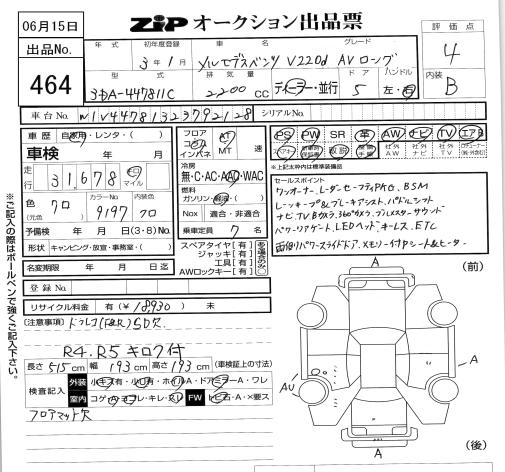 06月15日
出品No.
464
ZIP オークション出品票
年式 初年度登録 車名 グレード
3年1月 メルセデスベンツ V220d AVロング
型式 排気量 ドア ハンドル
3DA-447811C 2200CC ディーラー・並行 5 左・右
評価点
4
内装
B
車台No. W1V44781323792128 シリアルNo.
車歴 自家用・レンタ・( )
車検 年 月
走行 31,678 km マイル
色(元色) クロ カラーNo 9197 内装色 クロ
予備検 年 月 日(3・8)No.
形状 キャンピング・放宣・事務室・( )
名変期限 年 月 日迄
登録No.
リサイクル料金 有(¥18,930) 未
フロア コラム インパネ AT MT 速
冷房
無・C・AC・AAC・WAC
燃料
ガソリン・軽油・( )
Nox 適合・非適合
乗車定員 7 名
スペアタイヤ[有]
ジャッキ[有]
工具[有]
AWロックキー[有]
PS PW SR 革 AW ナビ TV エアB
社外AW 社外ナビ 社外TV
*上記太枠内は標準装備品
セールスポイント
ワンオーナー、レーダーセーフティPKG、BSM
レーンキープ&ブレーキアシスト、パドルシフト
ナビ、TV Bカメラ、360°カメラ、ブルメスターサウンド
パワーリアゲート、LEDヘッド キーレス、ETC
両側パワースライドドア、メモリー付Pシート&ヒーター
(注意事項) ドラレコ(F&R) SD欠
R4.R5 キロク付
長さ 515cm 幅 193cm 高さ 193cm (車検証上の寸法)
検査記入 外装 小キズ有・小凹有・ホイルA・ドアミラーA・ワレ
室内 コゲ・A・ヨゴレ・キレ・スレ FW トビ石・A・×要ス
フロアマット欠
※ご記入の際はボールペンで強くご記入下さい。
(前)
A
A
AU
A
(後)